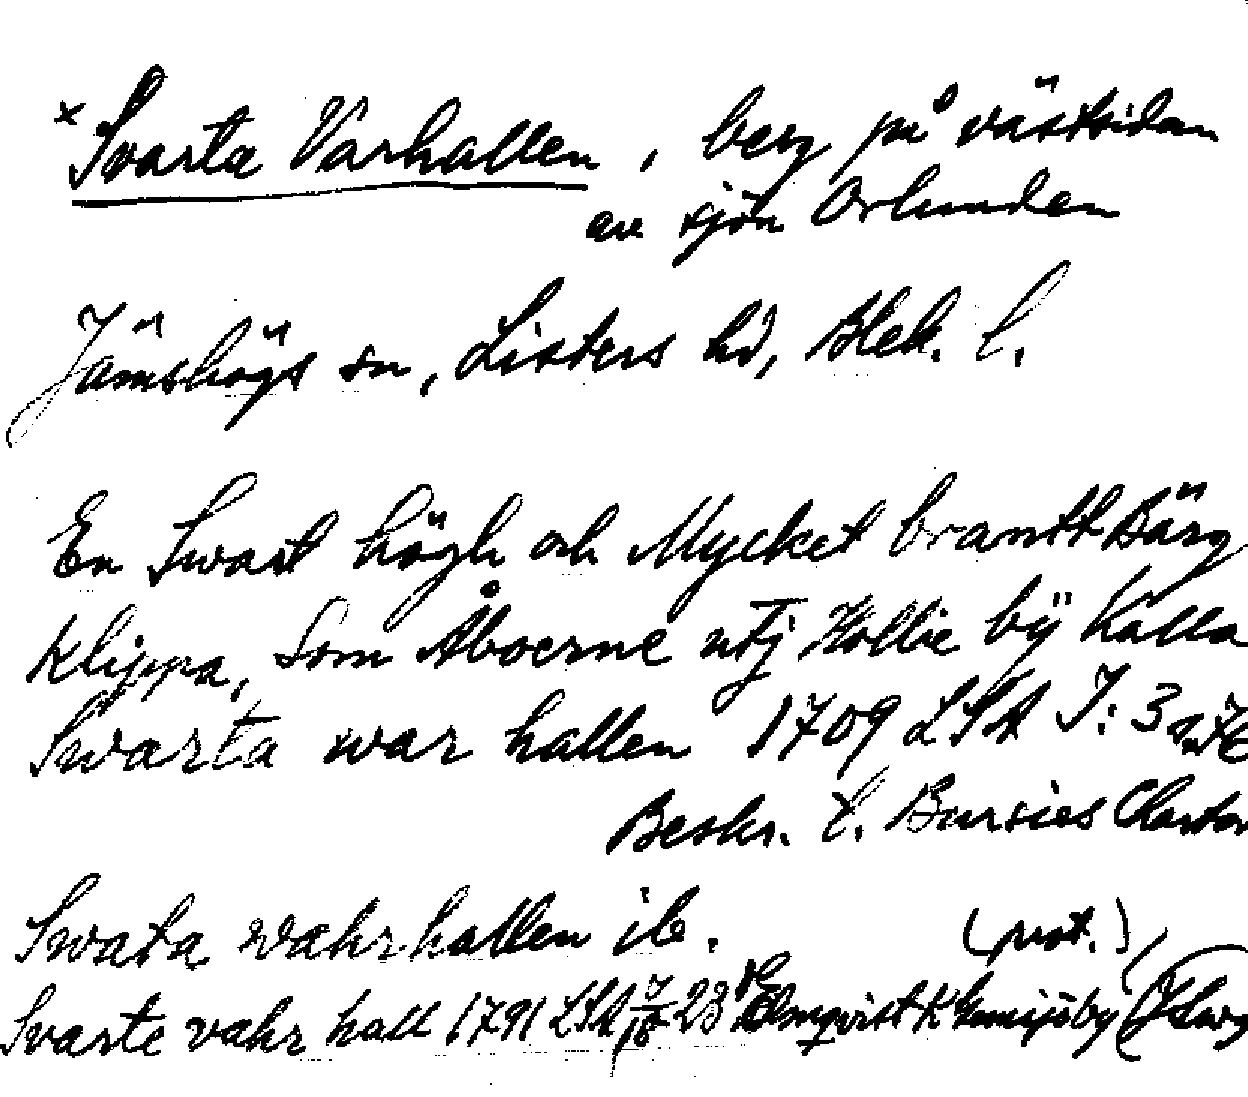 × Svarta Varhallen, berg på västsidan
av sjön Orlunden
Jämshögs sn, Listers hd, Blek. l.
En Swart högh och Mycket brantt Bärg
Klippa, Som Åboerne utj Hollie bÿ Kalla
Swarta war hallen 1709 LSA J: 3
Beskr. t. Bursies Charta
Swata wahrhallen ib. (prot.)
Svarte vahr hall 1791 LSA 23 Elmqvist K